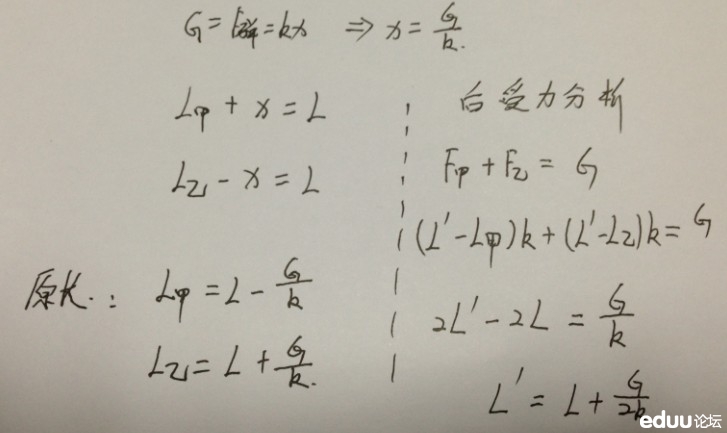 G = F弹 = kx ⇒ x = G/k.
L甲 + x = L
L乙 - x = L
原长: L甲 = L - G/k
L乙 = L + G/k.
后受力分析
F甲 + F乙 = G
(L' - L甲)k + (L' - L乙)k = G
2L' - 2L = G/k
L' = L + G/2k
eduu论坛